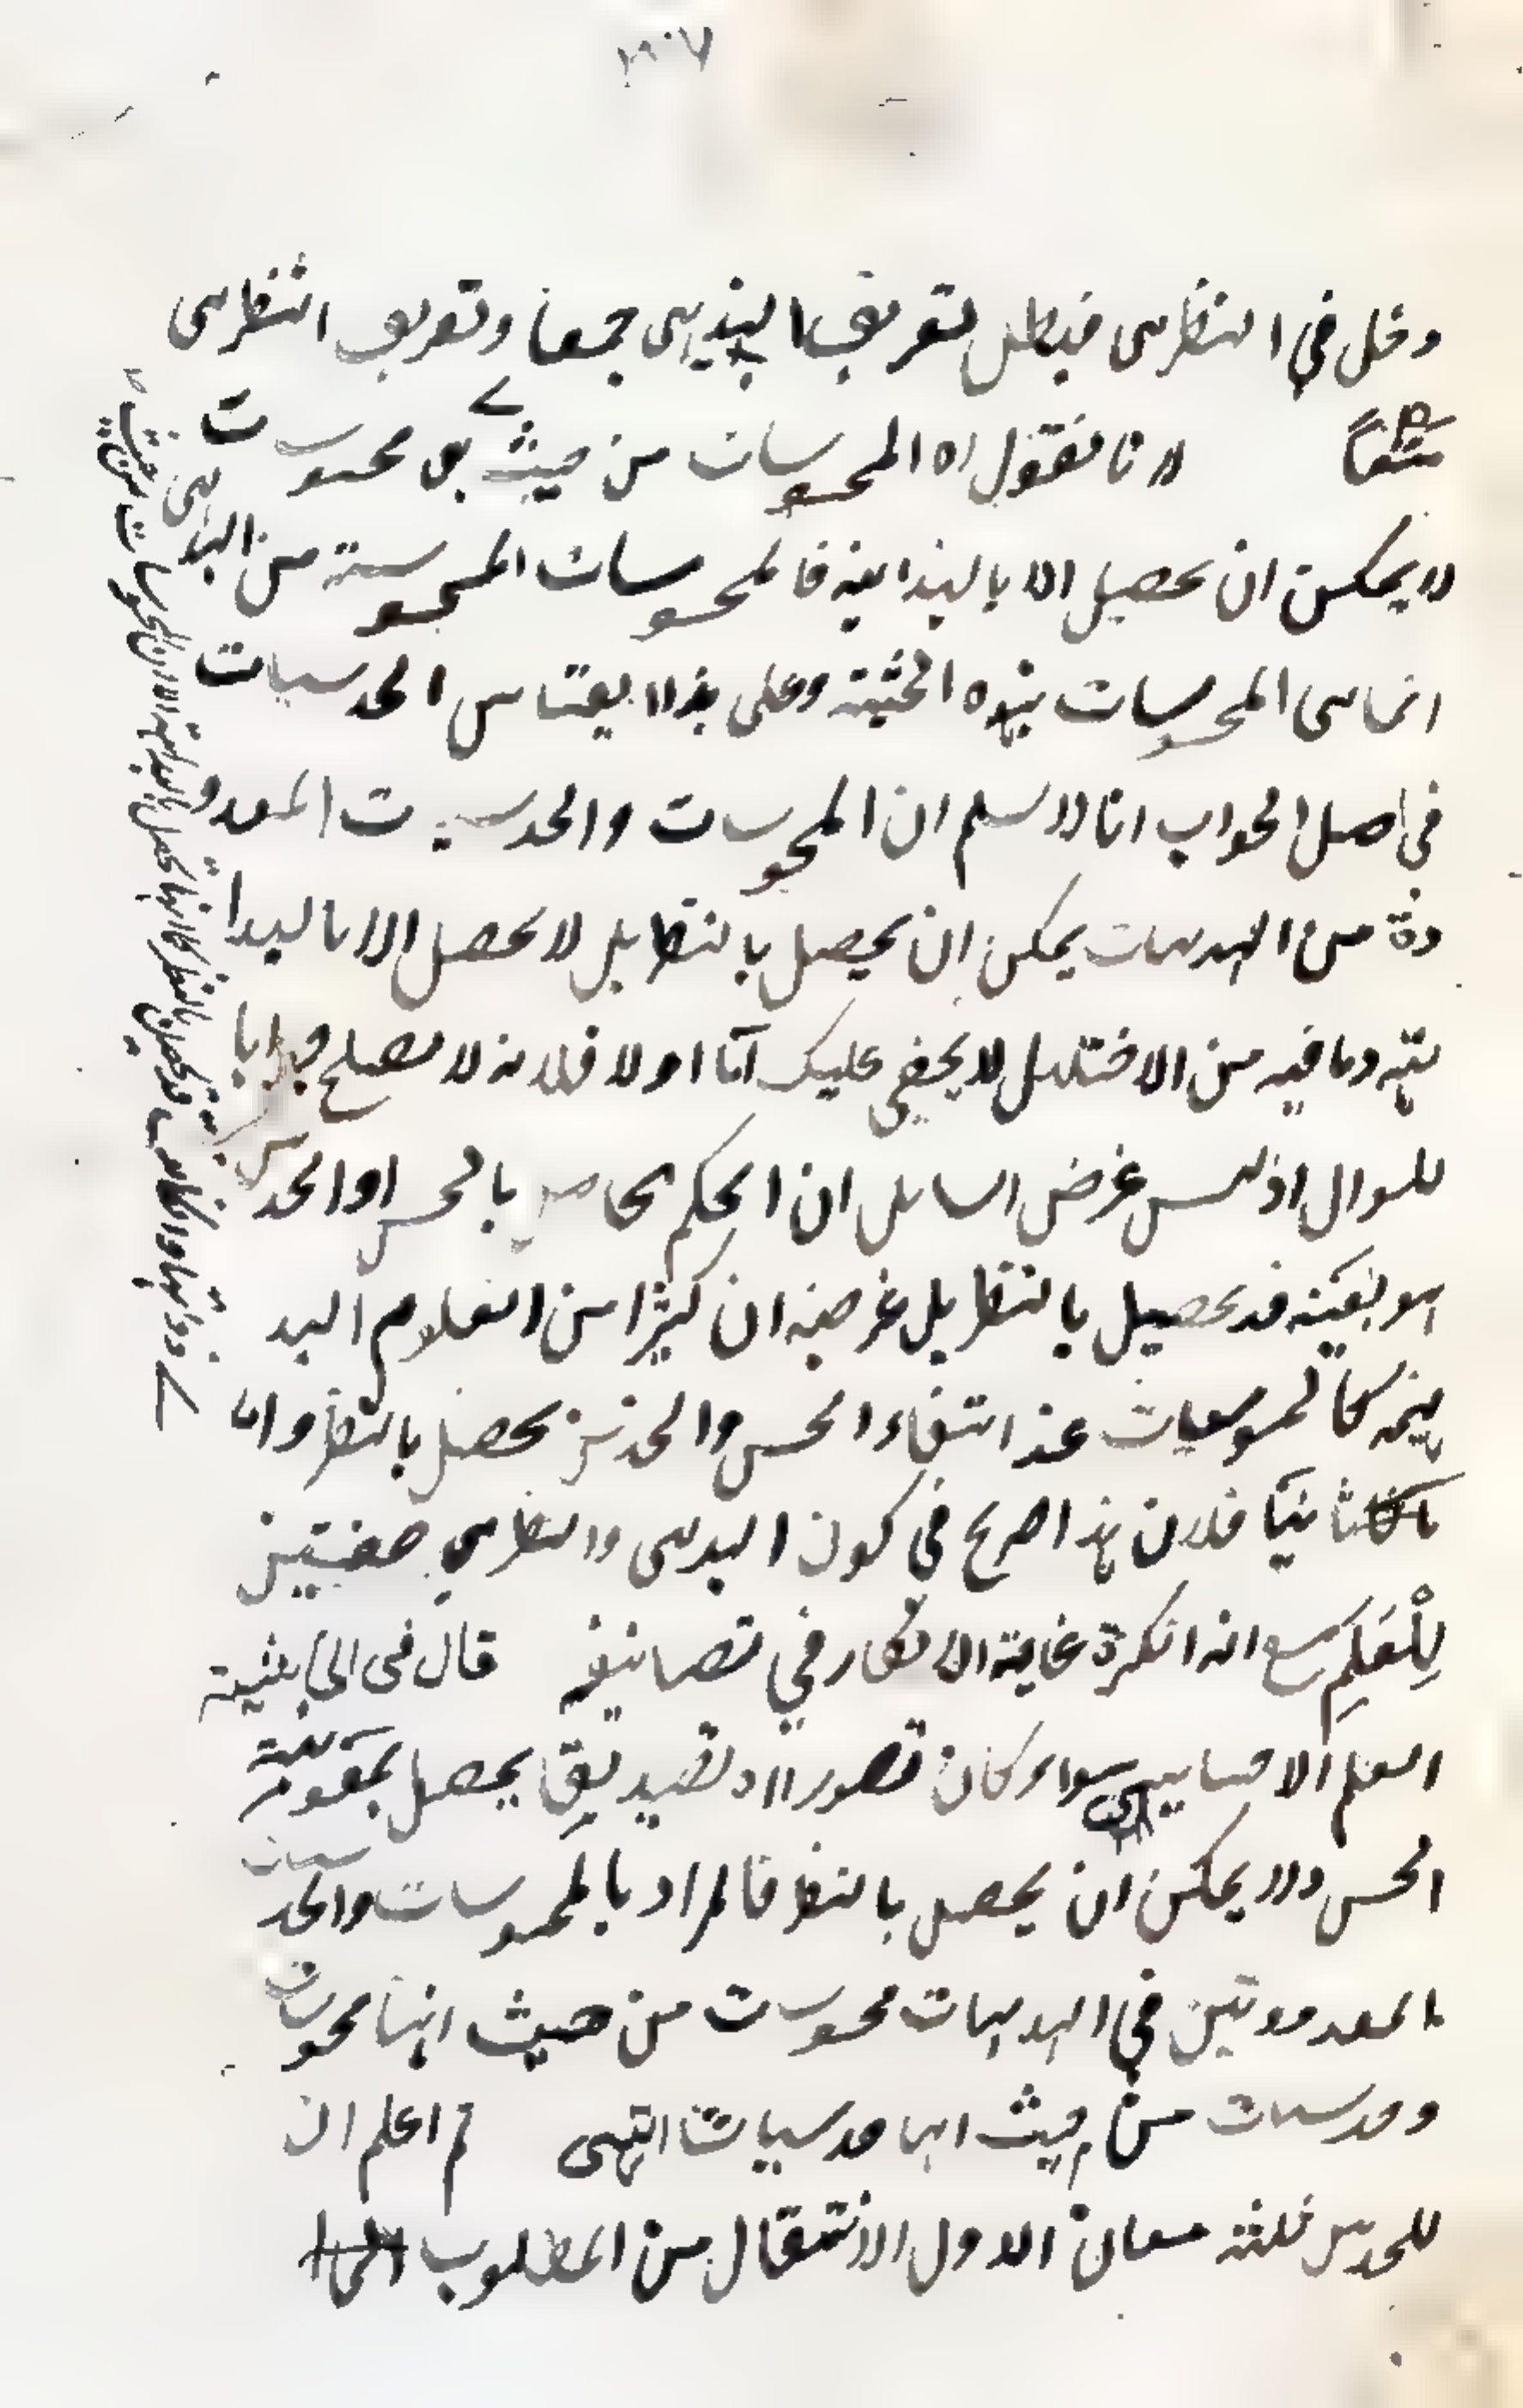 دخل في النظرى فبطل تعريف البديهى جمعا وتعريف النظرى
منعاً لانا نقول ان المحسوسات من حيث هى محسوسات
لا يمكن ان تحصيل الا بالبداهة فالمحسوسات المحسوسة من البداهى
انما هى المحسوسات بهذه الحثية وعلى هذا يقتاس الحدسيات
فى اصل الجواب انا لا نسلم ان المحسوسات والحدسيات المعدو
دة من البديهيات يمكن ان يحصل بالنظر بل لا تحصل الا بالبدا
هته وما فيه من الاختلال لا يخفى عليك اما اولا فلانه لا يصلح جوابا
للسوال اذ ليس غرض السائل ان الحكم الحاصل بالحس او الحدس
هو بعينه قد تحصيل بالنظر بل غرضه ان كثيرا من العلوم البد
يهية كالمحسوسات عند انتفاء الحس والحدس تحصل بالنظر واما
ثانيا فلان هذا صريح في كون البديهى والنظرى صفتين
لِلْعِلْمِ مع انه انكره غاية الانكار في تصانيفه قال فى الحاشية
العلم الاحساسى سواء كان تصورا او تصديقا يحصل بمقومة
الحس ولا يمكن ان يحصل بالنظر فالمراد بالمحسوسات والحدسيات
المعدودتين في البديهيات محسوسات من حيث انها محسوسات
وحدسيات من حيث انها حدسيات انتهى ثم اعلم ان
للحدس ثلثة معان الاول الانتقال من المطلوب